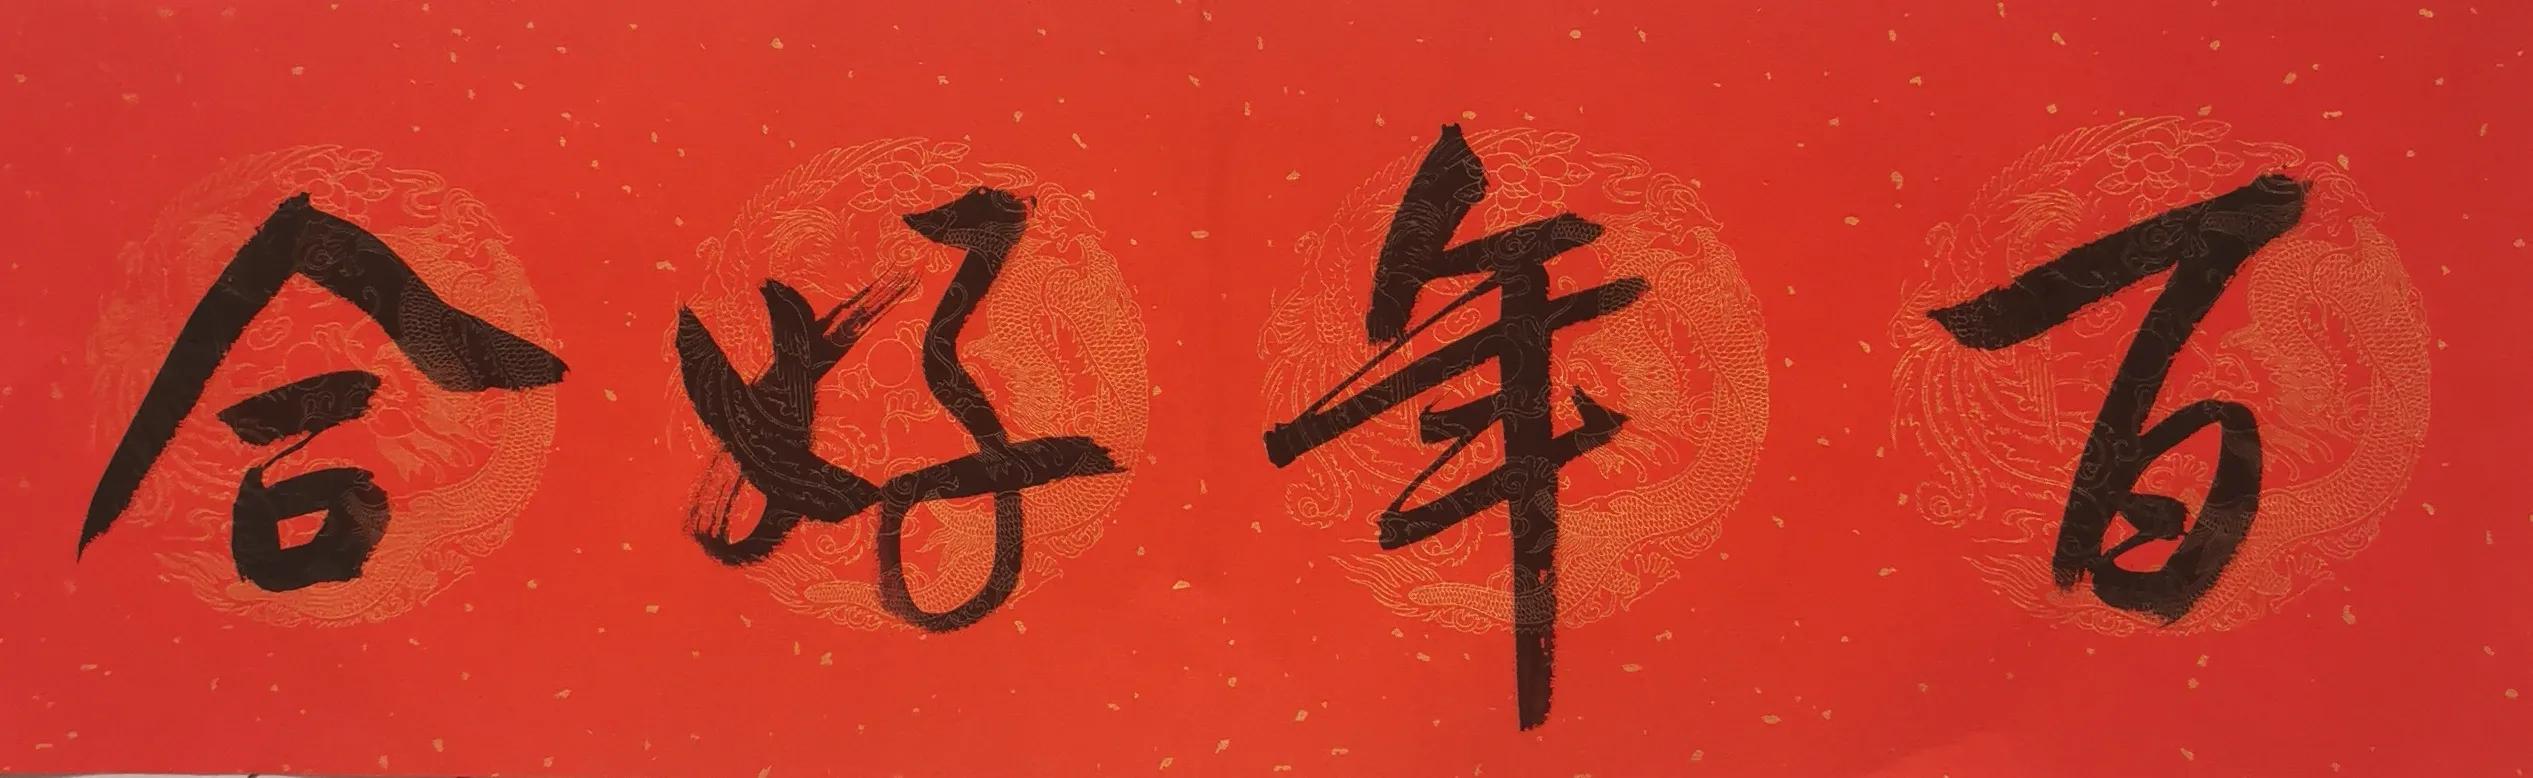 百年好合